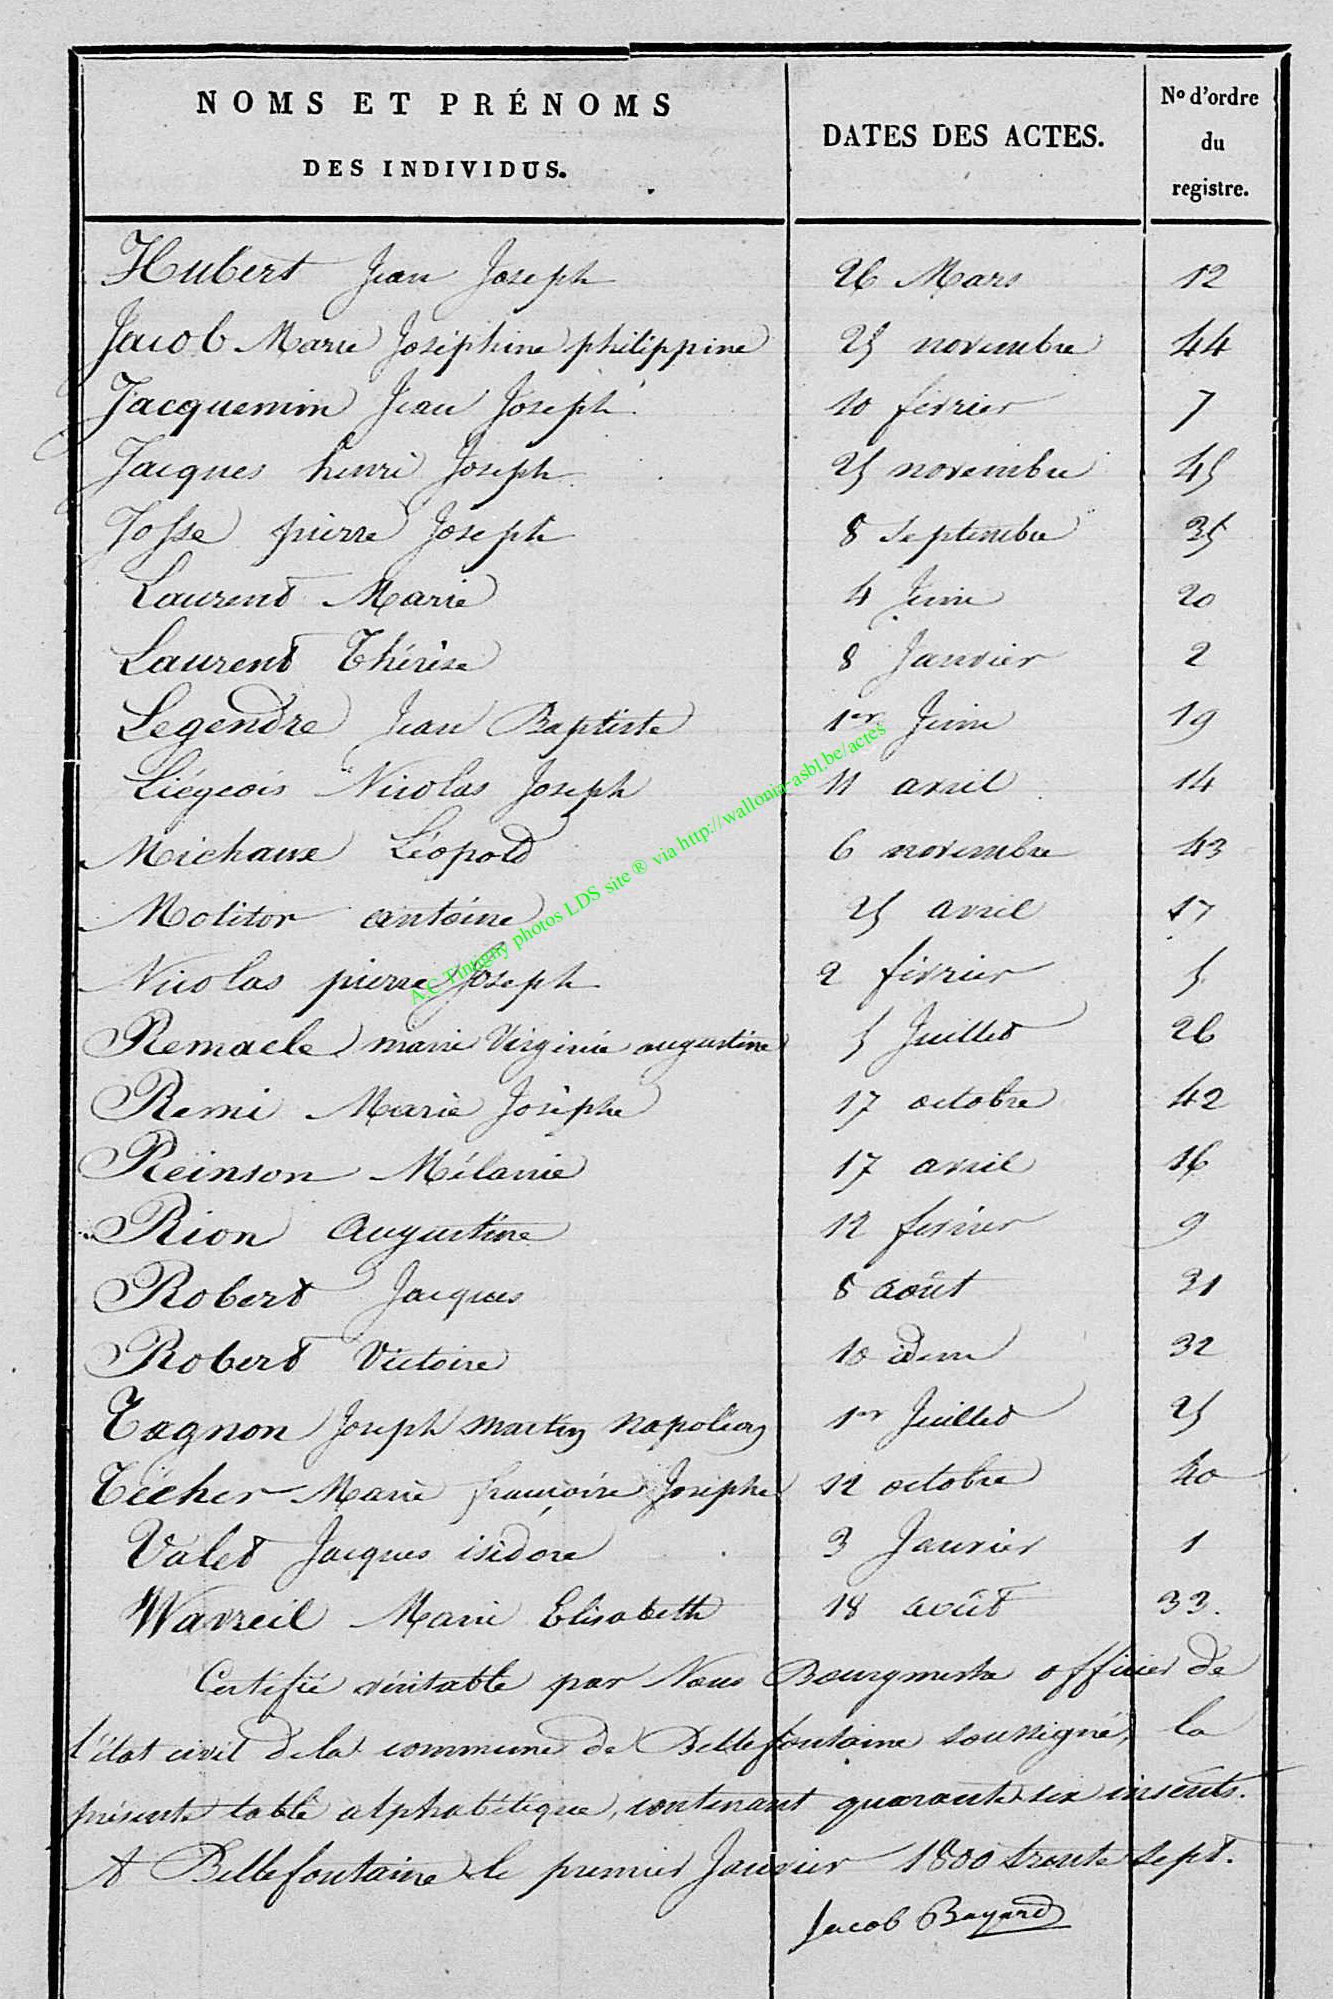 NOMS ET PRÉNOMS
DES INDIVIDUS.
DATES DES ACTES.
No d'ordre
du
registre.
Hubert Jean Joseph 26 Mars 12
Jacob Marie Joséphine philippine 25 novembre 44
Jacquemin Jean Joseph 10 fevrier 7
Jacques henri Joseph 25 novembre 45
Josse pierre Joseph 8 Septembre 35
Laurent Marie 4 Juin 20
Laurent Thérèse 8 Janvier 2
Legendre Jean Baptiste 1er Juin 19
Liégeois Nicolas Joseph 11 avril 14
Michaux Léopold 6 novembre 43
Molitor antoine 25 avril 17
Nicolas pierre Joseph 2 février 5
Remacle marie Virginie augustine 5 Juillet 26
Remi Marie Josèphe 17 octobre 42
Reinson Mélanie 17 avril 16
Rion Augustine 12 fevrier 9
Robert Jacques 8 août 31
Robert Victoire 10 idem 32
Tagnon Joseph Martin Napoléon 1er Juillet 25
Técher Marie françoise Josephe 12 octobre 40
Valet Jacques isidore 3 Janvier 1
Wavreil Marie Elisabeth 18 août 33.
Certifié véritable par Nous Bourgmestre officier de
l'état civil de la commune de Bellefontaine soussigné, la
présente table alphabétique, contenant quarante six inscrits.
A Bellefontaine le premier Janvier 1800 trente sept.
Jacob Bayard
A.C Tintigny photos LDS site ® via http://wallonia-asbl.be/actes